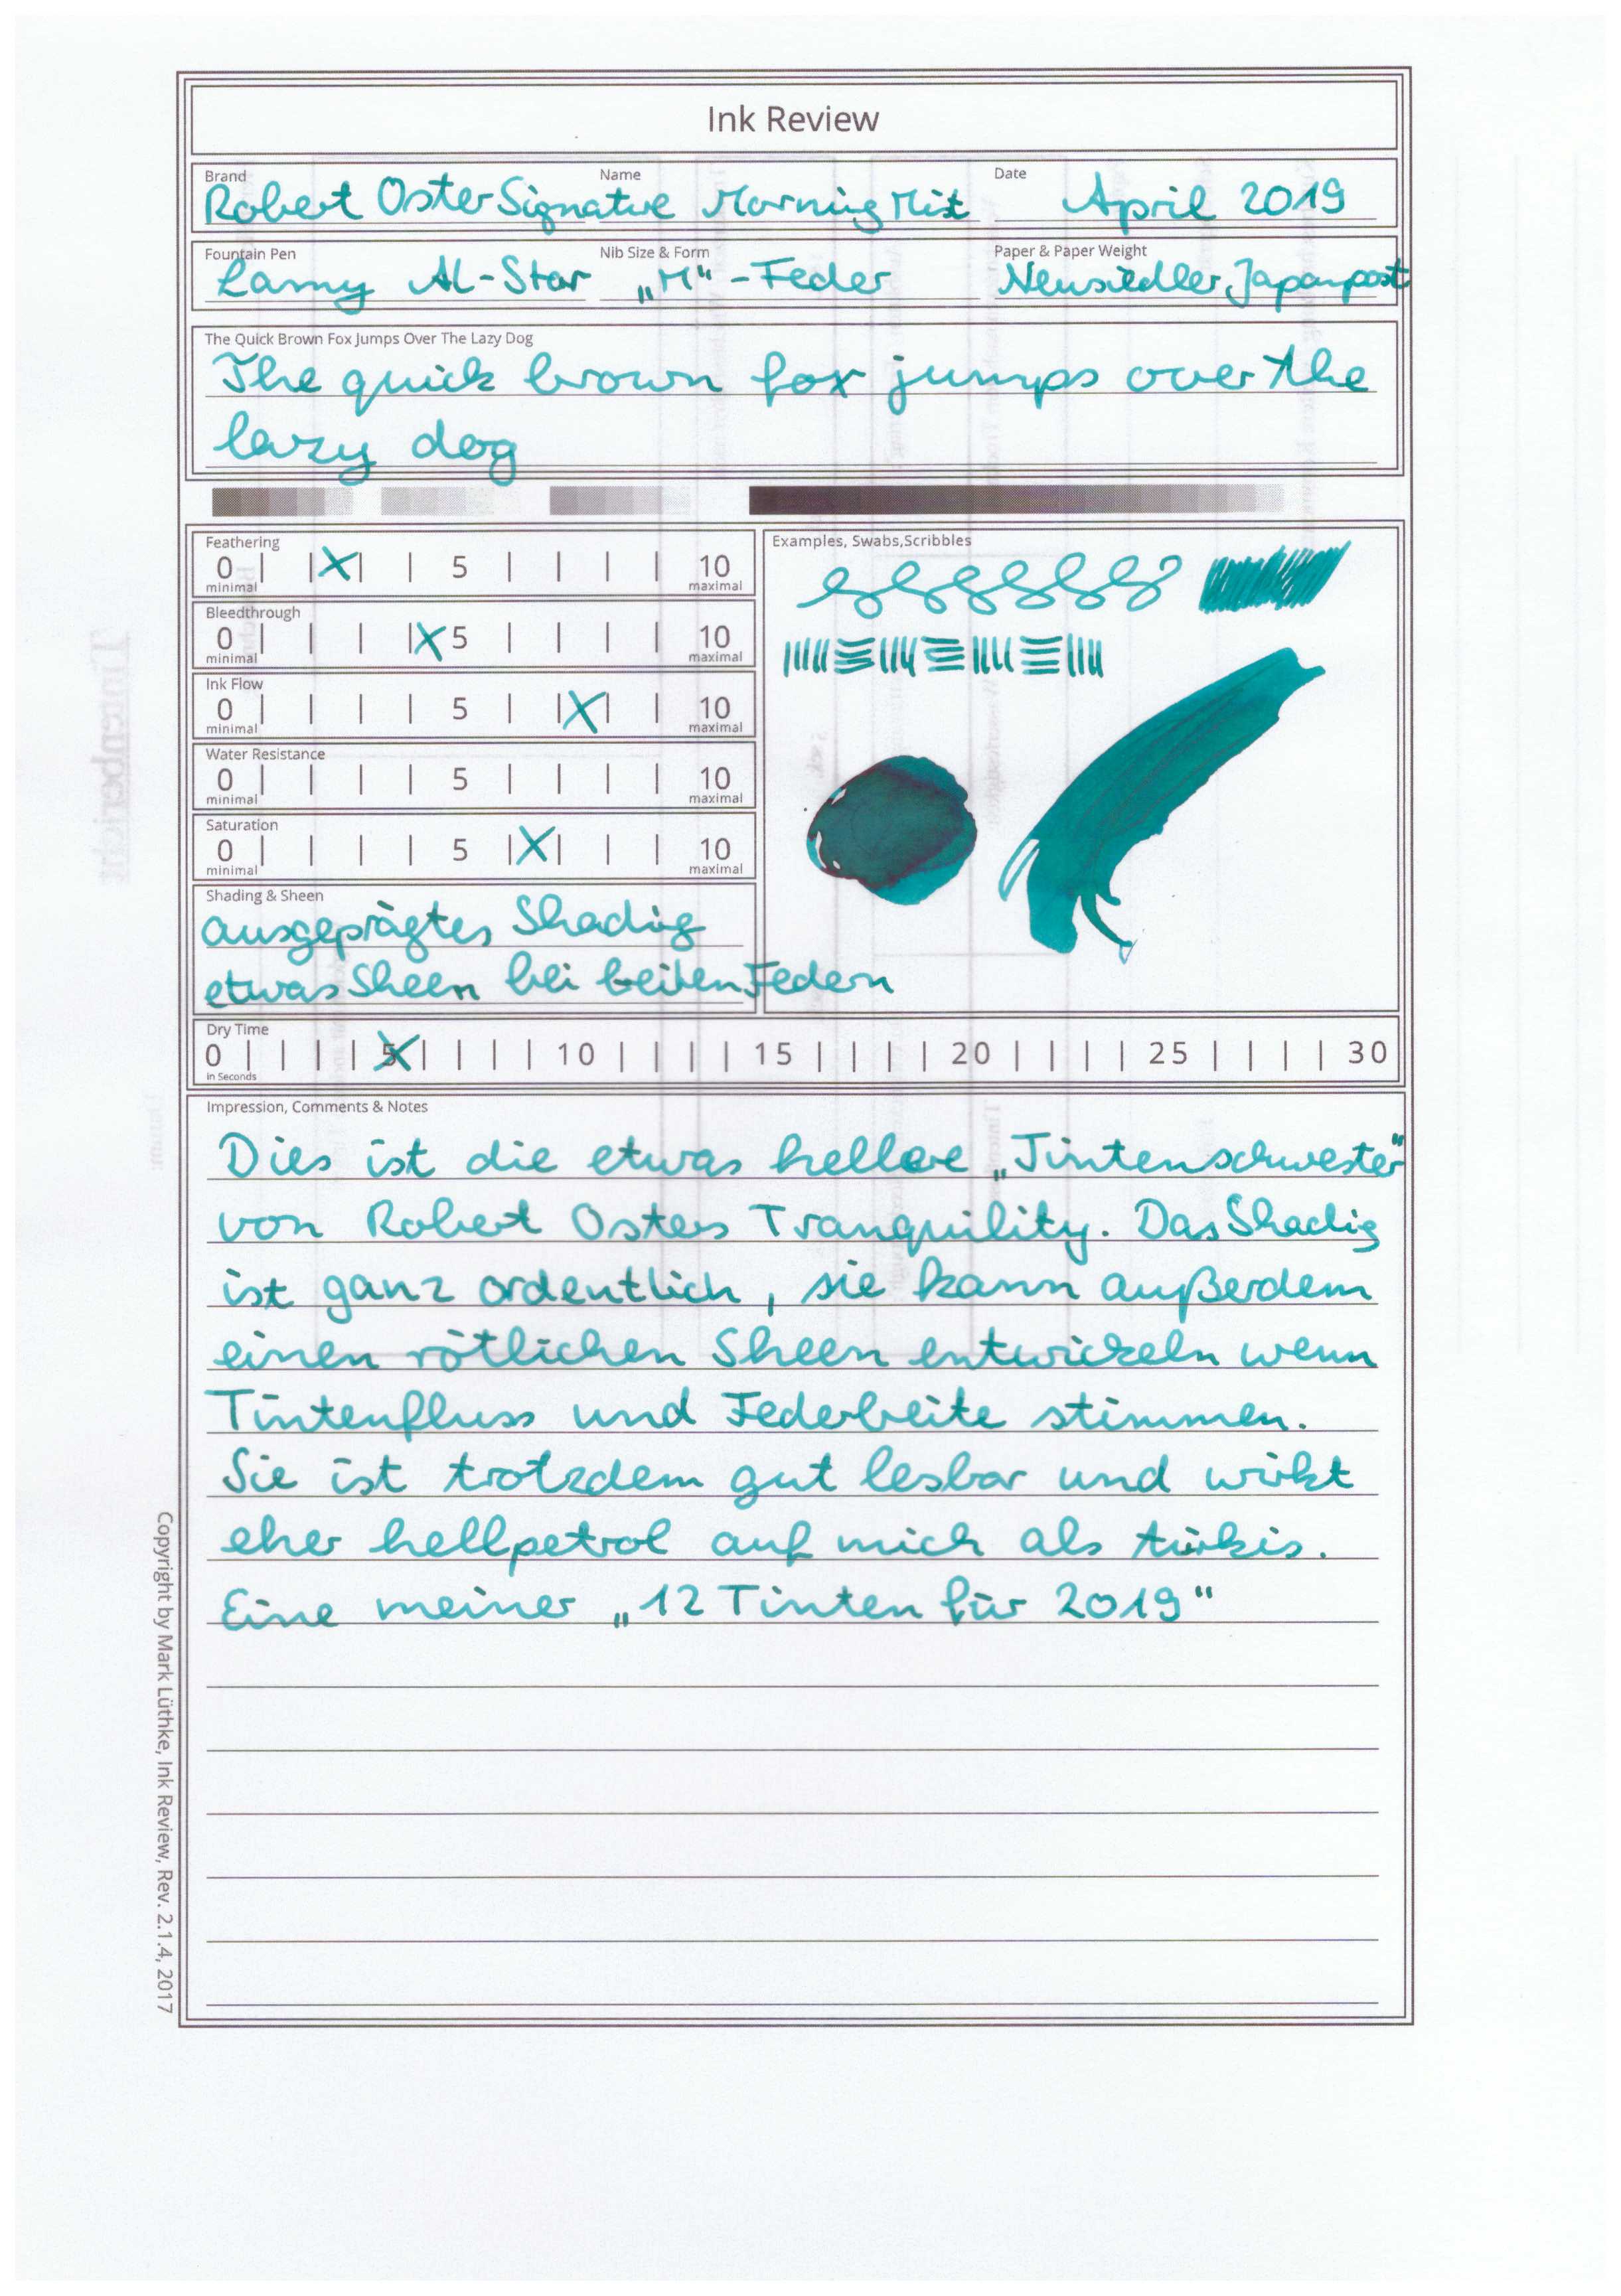 Ink Review
Brand Name Date
Robert Oster Signature Morning Mist April 2019
Fountain Pen Nib Size & Form Paper & Paper Weight
Lamy Al-Star „M“-Feder Neusiedler Japanpost
The Quick Brown Fox Jumps Over The Lazy Dog
The quick brown fox jumps over the
lazy dog
Feathering
0 | | X | | 5 | | | | 10
minimal maximal
Bleedthrough
0 | | | | X 5 | | | | 10
minimal maximal
Ink Flow
0 | | | | 5 | | X | | 10
minimal maximal
Water Resistance
0 | | | | 5 | | | | 10
minimal maximal
Saturation
0 | | | | 5 | X | | | 10
minimal maximal
Shading & Sheen
ausgeprägtes Shadig
etwas Sheen bei beiden Federn
Examples, Swabs,Scribbles
Dry Time
0 | | | | 5 X | | | | 10 | | | | 15 | | | | 20 | | | | 25 | | | | 30
in Seconds
Impression, Comments & Notes
Dies ist die etwas hellere „Tintenschwester“
von Robert Osters Tranquility. Das Shadig
ist ganz ordentlich, sie kann außerdem
einen rötlichen Sheen entwickeln wenn
Tintenfluss und Federbreite stimmen.
Sie ist trotzdem gut lesbar und wirkt
eher hellpetrol auf mich als türkis.
Eine meiner „12 Tinten für 2019“
Copyright by Mark Lüthke, Ink Review, Rev. 2.1.4, 2017
Tintenbericht